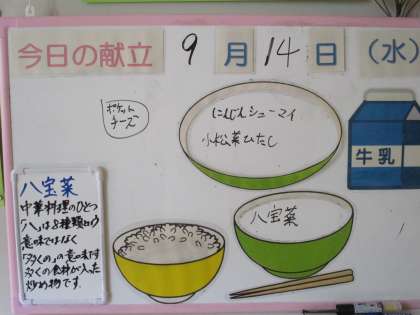 今日の献立 9月14日(水)
ポケット
チーズ
にんじんシューマイ
小松菜ひたし
牛乳
八宝菜
八宝菜
中華料理のひとつ
「八」は8種類という
意味ではなく
「多くの」の意味です
多くの食材が入った
炒め物です。